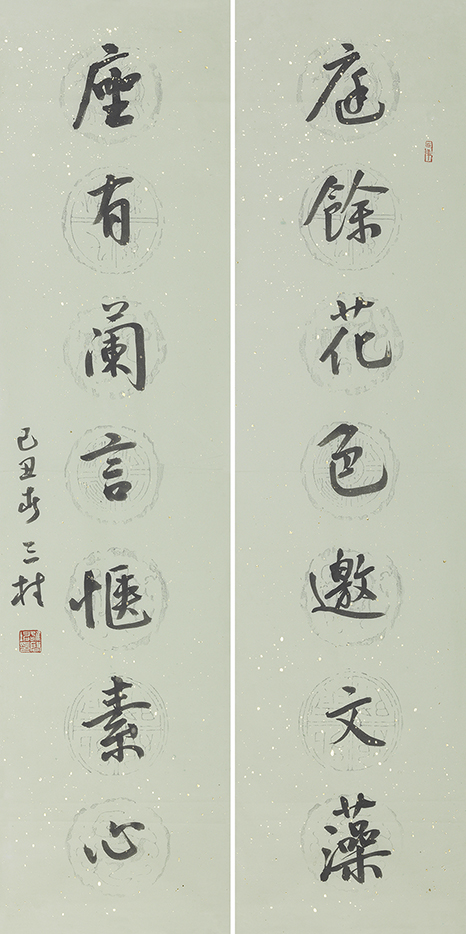 庭餘花色邀文藻
座有蘭言愜素心
己丑春 三村